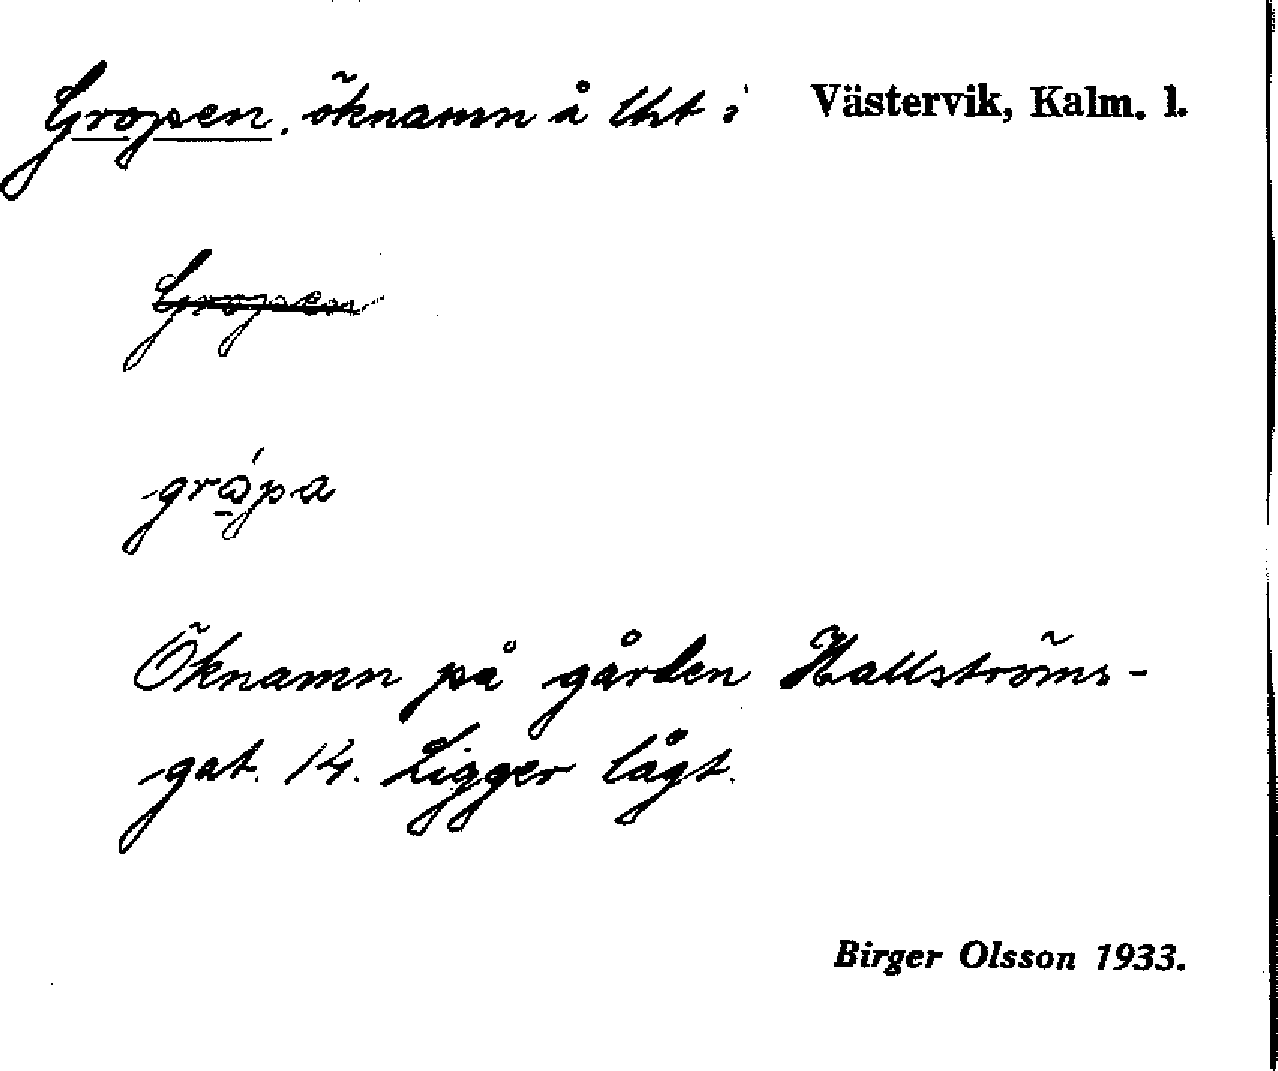 Gropen, öknamn å tht i Västervik, Kalm. l.
Gropen
grǻpa
Öknamn på gården Hallströms-
gat. 14. Ligger lågt.
Birger Olsson 1933.